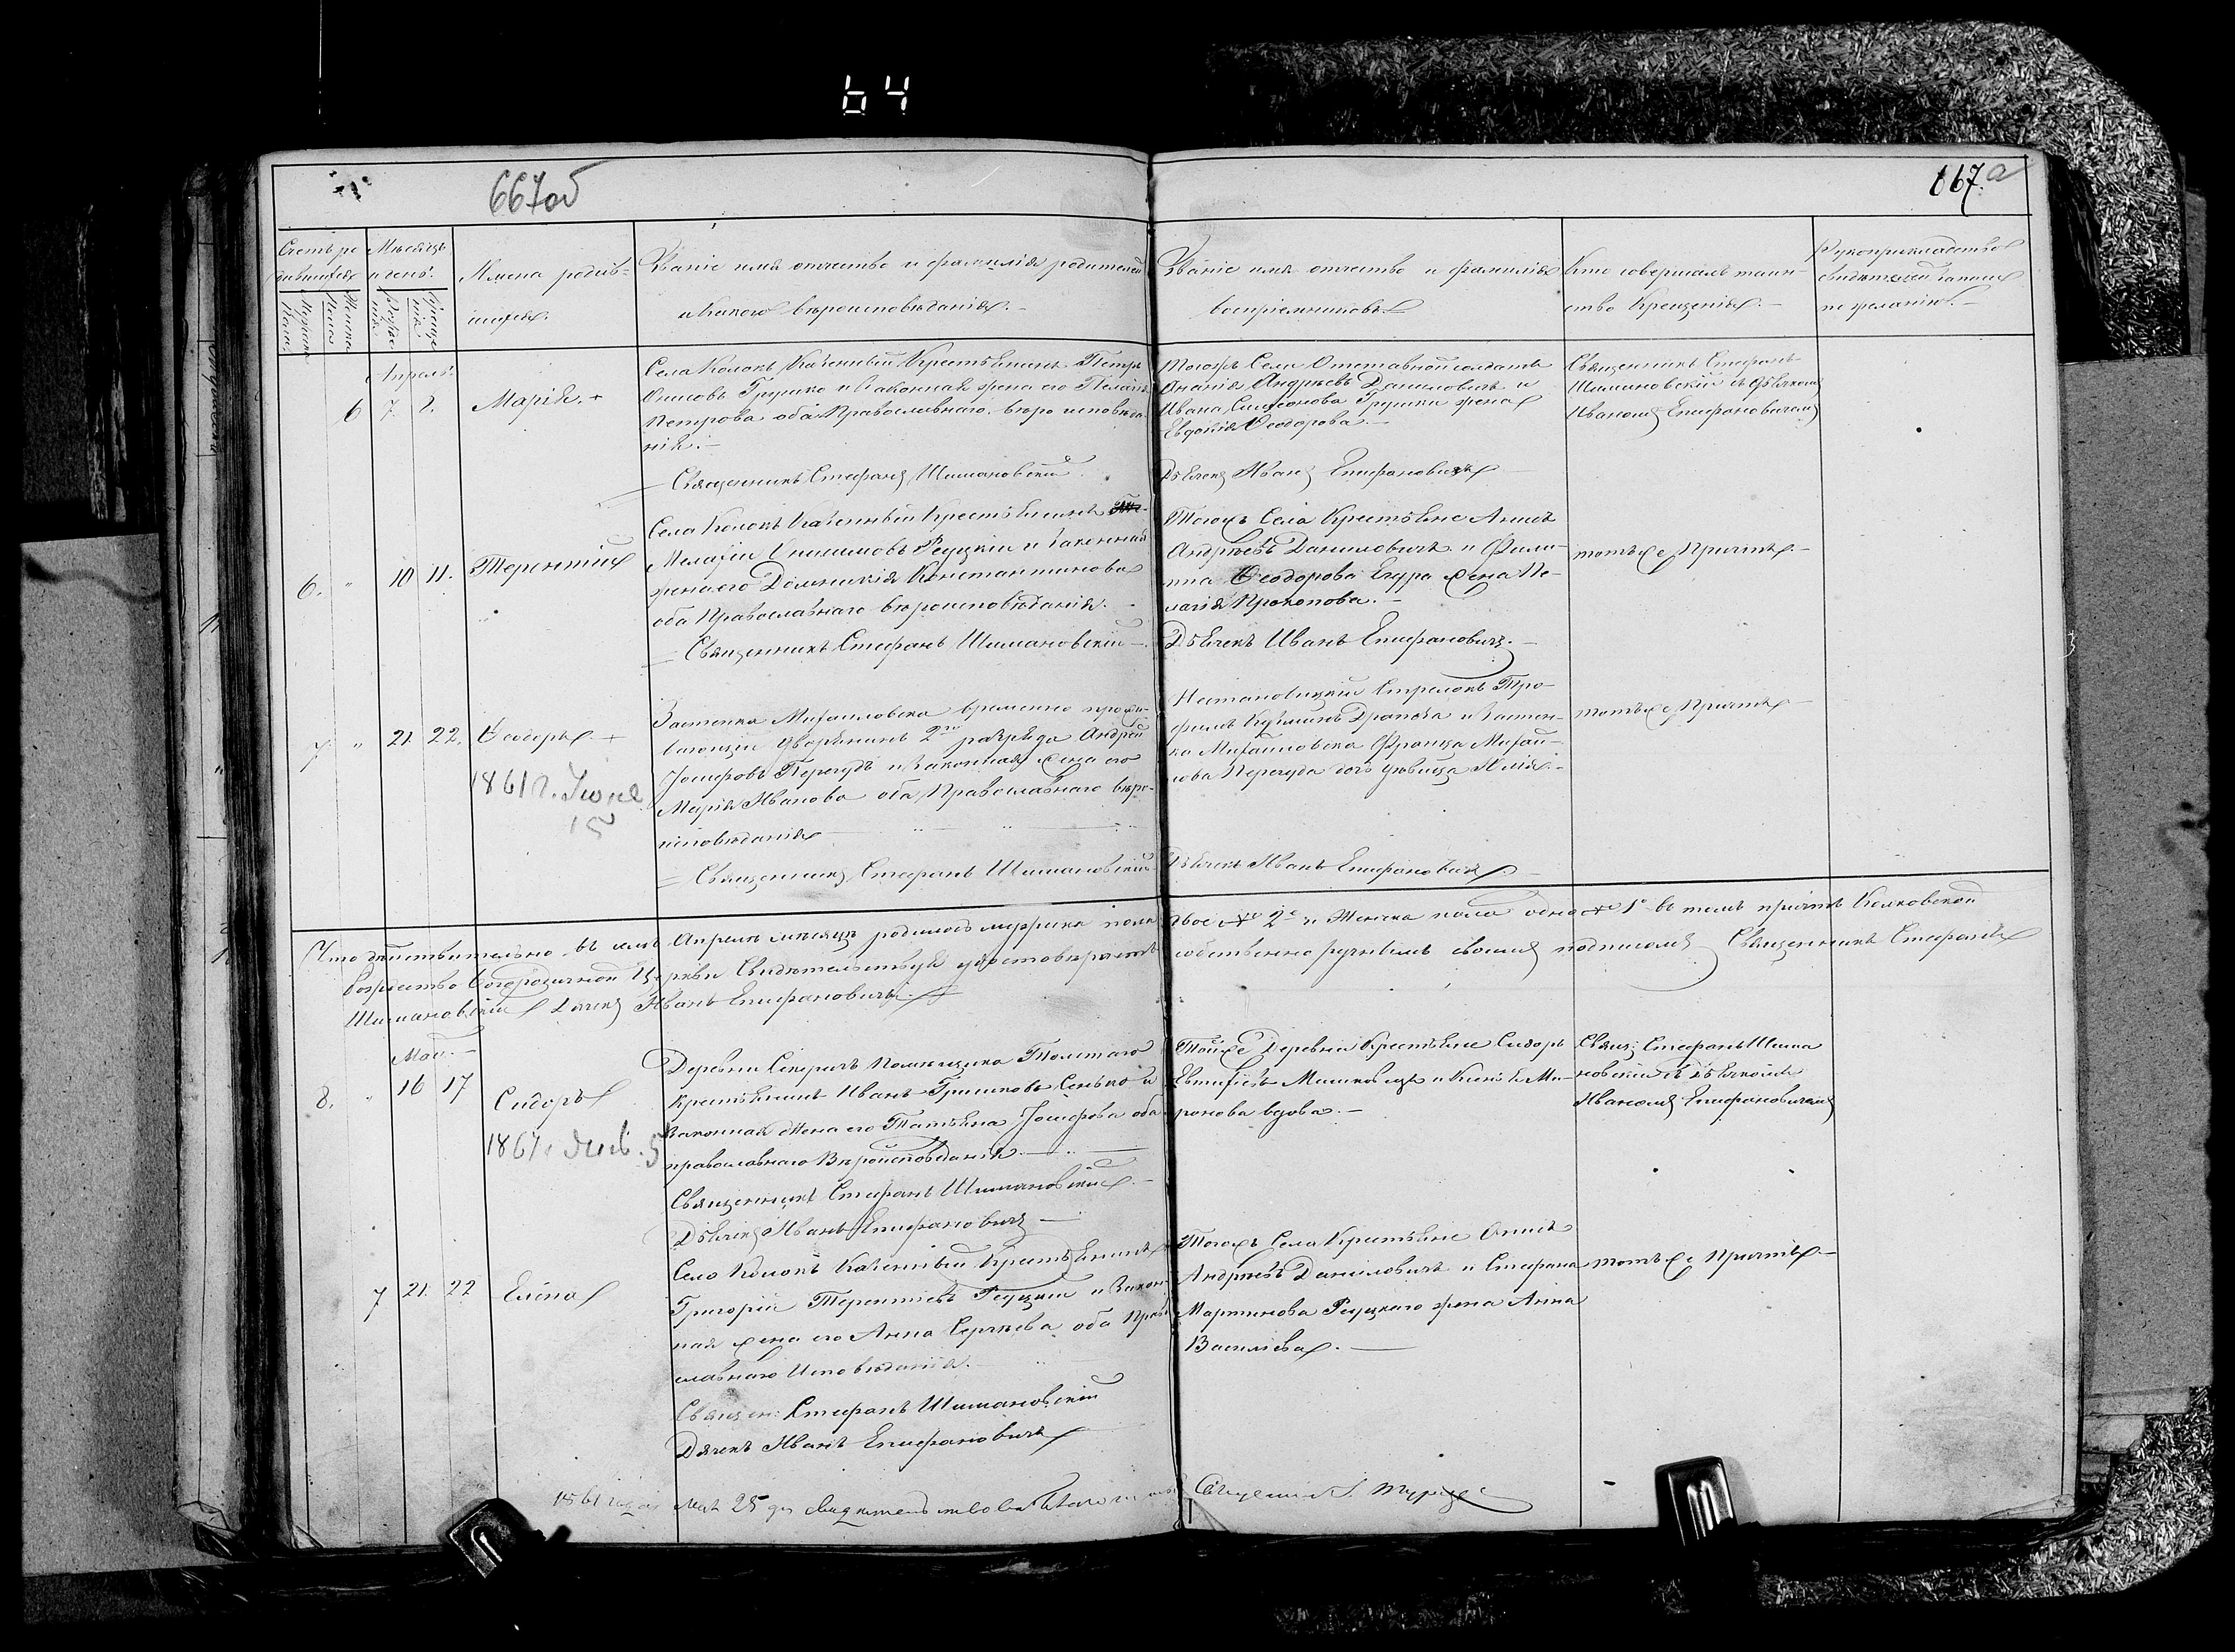 64
667об
667.a
Счетъ ро
дившихся
Мѣсяцъ
и день.
Мужска
Пола.
Женска
Пола
Рожде
нія.
Креще
нія.
Имена родив-
шихся.
Званіе имя отчество и фамилія родителей
и какого вѣроисповѣданія.-
Званіе имя отчество и фамилія
воспріемниковъ.
Кто совершалъ таин-
ство Крещенія.-
Рукоприкладство
свидѣтелей записи
по желанію.-
Апрель.
6 7. 8.
Марія. +
Села Колокъ Казенный Крестьянинъ Петръ
Осиповъ Грушко и Законная жена его Пелагія
Петрова оба Православнаго вѣро исповѣда-
нія.-
Священникъ Стефанъ Шимановскій.
Тогожъ Села Отставной солдатъ
Ананія Андреевъ Даниловичъ и
Ивана Симеонова Грушки жена
Евдокія Ѳеодорова.-
Дьячекъ Иванъ Епифановичъ
Священникъ Стефанъ
Шимановскій съ дьячкомъ
Иваномъ Епифановичемъ
6. " 10 11.
Терентій
Села Колокъ Казенный Крестьянинъ
Онисимовъ Реуцкій и законная
жена его Домникія Константинова
оба Православнаго вѣроисповѣданія.
Священникъ Стефанъ Шимановскій-
Тогожъ Села Крестьяне
Андреевъ Даниловичъ и Фили-
ппа Ѳеодорова жена Пе-
лагія Прокопова.-
Дьячекъ Иванъ Епифановичъ.-
тотъ же Причтъ.-
7 " 21. 22.
Ѳеодоръ. +
1861 г. Іюня
15
Застенка Михайловска временно прожи-
вающій дворянинъ 2го разряда Андрей
Іосифовъ Перегудъ и Законная жена его
Марія Иванова оба Православнаго вѣро-
исповѣданія
Священникъ Стефанъ Шимановскій
Стрелокъ Тро-
фимъ Кузьминъ и Застен-
ка Михайловска Франца Михай-
лова Перегуда дочь дѣвица
Дьячекъ Иванъ Епифановичъ.
тотъ же Причтъ-
Что дѣйствительно въ семъ Апрелѣ мѣсяцѣ родилось мужска пола двое № 2е и Женска пола одна № 1е въ томъ причтъ Колковской
Рождество Богородичной Церкви Свидѣтельствуя удостовѣряетъ собственно ручнымъ своимъ подписомъ Священникъ Стефанъ
Шимановскій Дячекъ Иванъ Епифановичъ
Май.-
8. " 16 17
Сидоръ
1867 г. Янв. 5
Деревни Секеричъ Помещика Толстаго
Крестьянинъ Иванъ Гришковъ Сенько и
Законная жена его Татьяна Іосифова оба
православнаго Вѣроисповѣданія.
Священникъ Стефанъ Шимановскій.-
Дьячекъ Иванъ Епифановичъ-
Той же Деревни Крестьяне Сидоръ
Евтифіевъ и Ми-
ронова вдова.-
Свящ: Стефанъ Шима
новскій съ дьячкомъ
Иваномъ Епифановичемъ
7 21. 22
Елена
Село Колокъ Казенный Крестьянинъ
Григорій Терентіевъ Реуцкій и Закон-
ная жена его Анна Сергѣева оба Право-
славнаго Исповѣданія.-
Священ: Стефанъ Шимановскій
Дячекъ Иванъ Епифановичъ
Тогожъ Села Крестьяне
Андреевъ Даниловичъ и Стефана
Мартинова Реуцкаго жена Анна
Василіева.-
тотъ же Причтъ.-
1861 года Мая 25 дня свидѣтельствовалъ